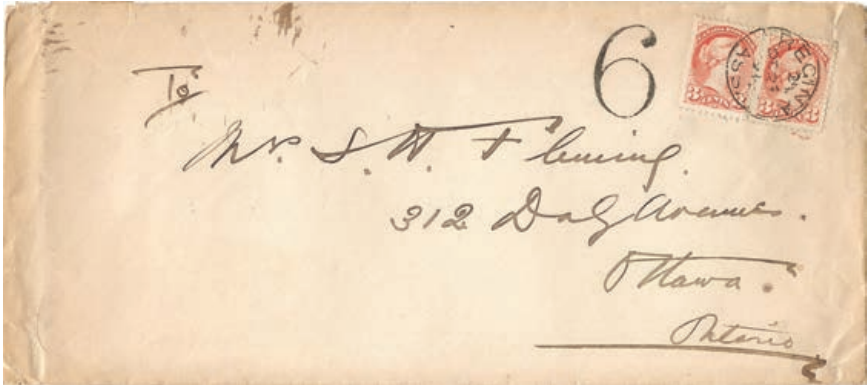 6
REGINA
ASSA
To
Mr. S. H. Fleming.
312 Daly Avenue.
Ottawa.
Ontario